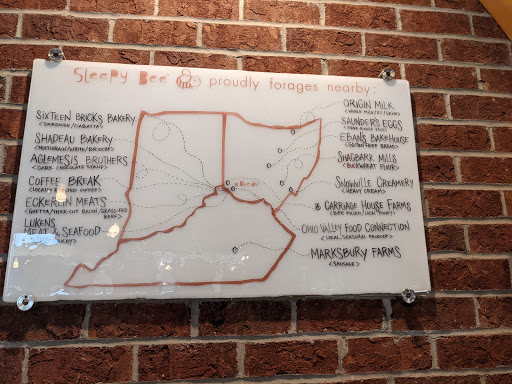 Sleepy Bee proudly forages nearby:
SIXTEEN BRICKS BAKERY
<SOURDOUGH/CIABATTA>
SHADEAU BAKERY
<MULTIGRAIN/WHITE/BRIOCHE>
AGLEMESIS BROTHERS
<DARK CHOCOLATE SHAVED>
COFFEE BREAK
<LOCALLY ROASTED COFFEE>
ECKERLIN MEATS
<GOETTA/THICK-CUT BACON/GRASS-FED BEEF>
LUKENS
MEAT & SEAFOOD
ORIGIN MILK
SAUNDER'S EGGS
EBAN'S BAKEHOUSE
<GLUTEN FREE BREAD>
SHAGBARK MILLS
<BUCKWHEAT FLOUR>
SNOWVILLE CREAMERY
<HEAVY CREAM>
CARRIAGE HOUSE FARMS
OHIO VALLEY FOOD CONNECTION
<LOCAL, SEASONAL PRODUCE>
MARKSBURY FARMS
<SAUSAGE>